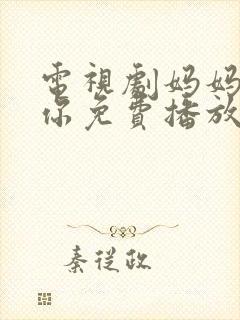 電視劇妈妈
你免費播放
秦從政